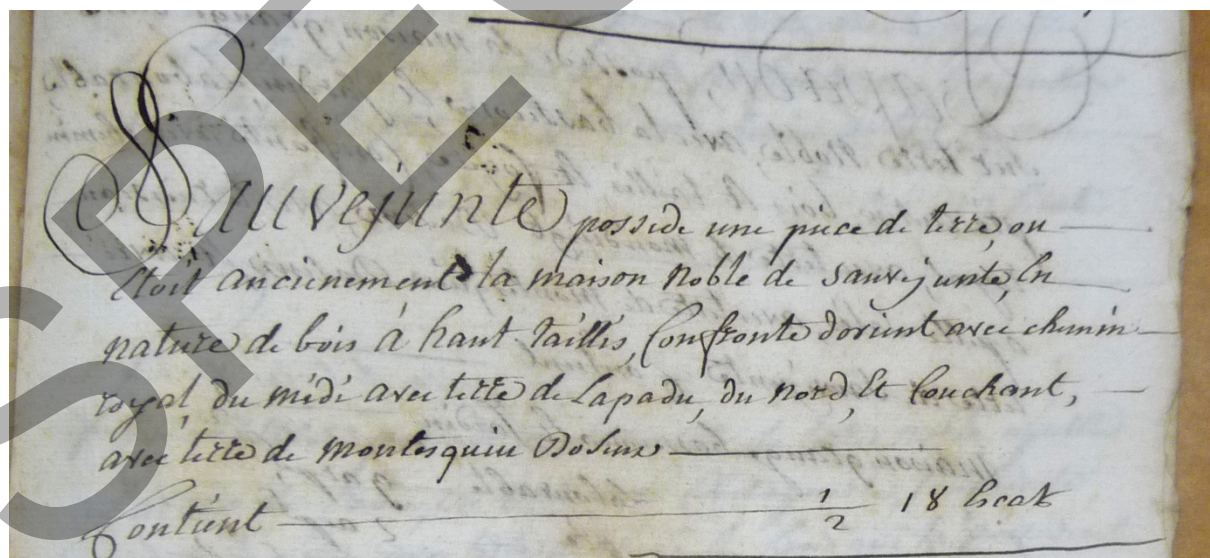 Sauvejunte possede une piece de terre, ou
Etoit anciennement la maison noble de sauvejunte, En
nature de bois à haut taillis, Confronte dorient avec chemin
royal, du midi avec terre de Lapadu, du nord, Et Couchant,
avec terre de montesquiu
Contient 1/2 18 Escats